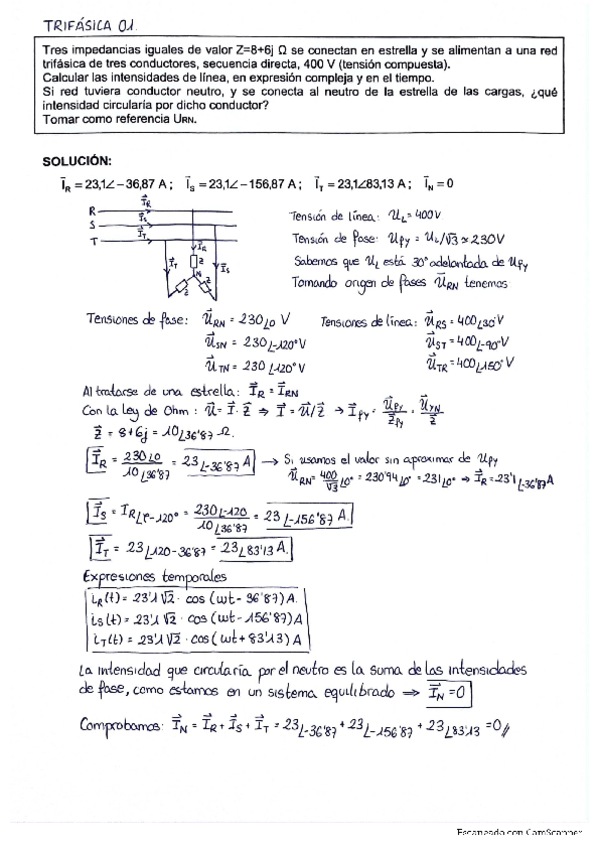 TRIFÁSICA 01.
Tres impedancias iguales de valor Z=8+6j Ω se conectan en estrella y se alimentan a una red
trifásica de tres conductores, secuencia directa, 400 V (tensión compuesta).
Calcular las intensidades de línea, en expresión compleja y en el tiempo.
Si red tuviera conductor neutro, y se conecta al neutro de la estrella de las cargas, ¿qué
intensidad circularía por dicho conductor?
Tomar como referencia URN.
SOLUCIÓN:
I̅R = 23,1∠−36,87 A ; I̅S = 23,1∠−156,87 A ; I̅T = 23,1∠83,13 A ; I̅N = 0
R
S
T
IR
IS
IT
IR
IT
IS
Z
N
Z
Z
Tensión de línea: UL = 400V
Tensión de fase: UfY = UL/√3 ≈ 230V
Sabemos que UL está 30° adelantada de UfY
Tomando origen de fases URN tenemos
Tensiones de fase: URN = 230∠0 V Tensiones de línea: URS = 400∠30° V
USN = 230∠-120° V UST = 400∠-90° V
UTN = 230∠120° V UTR = 400∠150° V
Al tratarse de una estrella: IR = IRN
Con la ley de Ohm: U = I · Z ⇒ I = U/Z → IfY = UfY/ZfY = UYN/Z
Z = 8+6j = 10∠36'87 Ω.
IR = 230∠0 / 10∠36'87 = 23∠-36'87 A → Si usamos el valor sin aproximar de UfY
URN = 400/√3 ∠0° = 230'94∠0° = 231∠0° ⇒ IR = 23'1∠-36'87 A
IS = IR∠-120° = 230∠-120 / 10∠36'87 = 23∠-156'87 A.
IT = 23∠120-36'87 = 23∠83'13 A.
Expresiones temporales
iR(t) = 23'1 √2 · cos (ωt - 36'87) A.
iS(t) = 23'1 √2 · cos (ωt - 156'87) A
iT(t) = 23'1 √2 · cos (ωt + 83'13) A
La intensidad que circularía por el neutro es la suma de las intensidades
de fase, como estamos en un sistema equilibrado ⇒ IN = 0
Comprobamos: IN = IR + IS + IT = 23∠-36'87 + 23∠-156'87 + 23∠83'13 = 0//
Escaneado con CamScanner